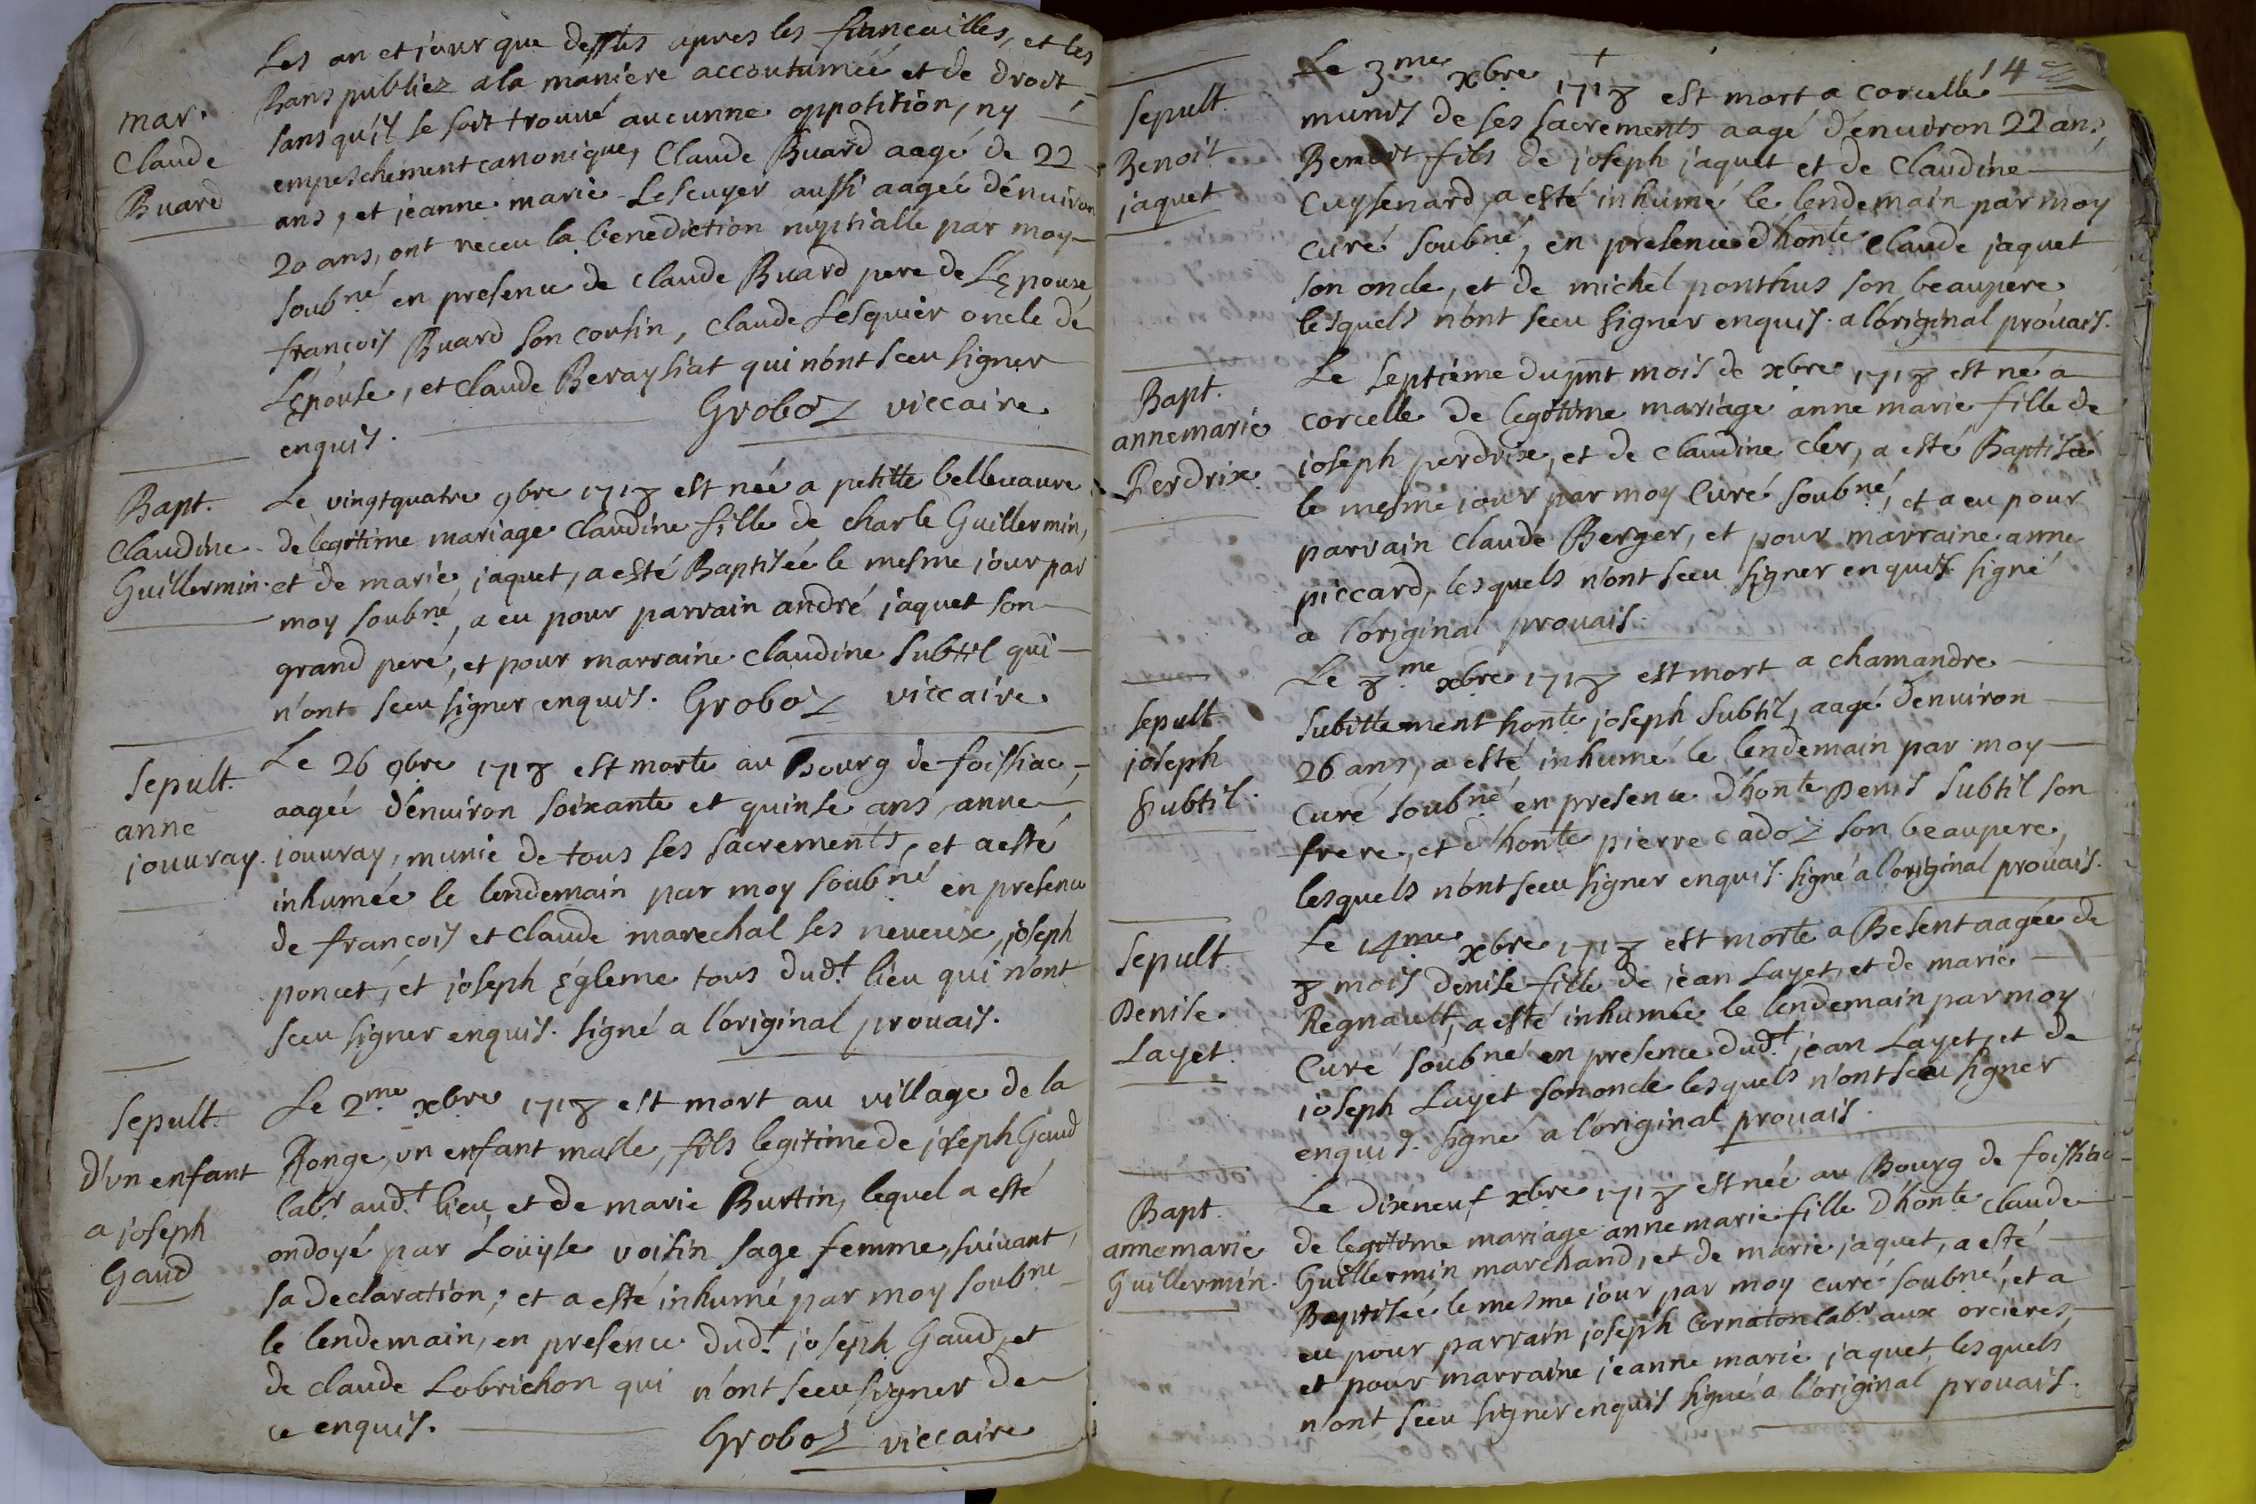 mar.
Claude
Buard
Les an et jour que dessus apres les fiancailles, et les
Bans publiez a la maniere accoutumée et de droit,
sans qu'il se soit trouué aucunne oppotition, ny
empeschement canonique, Claude Buard aagé de 22
ans, et jeanne marie Lescuyer aussi aagée d'énuiron
20 ans, ont receu la benediction nuptialle par moy
soubné en presence de Claude Buard pere de L'epoux
françois Buard son cousin, Claude Lesquier oncle de
L'épouse, et Claude Beraysiat qui n'ont sceu signer
enquis.
Groboz viccaire
Bapt.
Claudine
Guillermin.
Le vingtquatre 9bre 1718 est née a petitte belleuaure
de legitime mariage Claudine fille de charle Guillermin,
et de marie jaquet, a esté Baptisée le mesme jour par
moy soubné, a eu pour parrain andré jaquet son
grand pere, et pour marraine Claudine Subtil qui
n'ont sceu signer enquis. Groboz viccaire
Sepult.
anne
jouuray.
Le 26 9bre 1718 est morte au Bourg de foissiac,
aagée d'énuiron soixante et quinse ans anne
jouuray, munie de tous ses sacrements, et a esté
inhumée le lendemain par moy soubné en presence
de françois et Claude marechal ses neueux, joseph
poncet, et joseph égleme tous dudt. lieu qui n'ont
sceu signer enquis. signé a l'original prouais.
Sepult.
d'un enfant
a joseph
Gaud
Le 2me xbre 1718 est mort au village de la
Ronge, un enfant masle, fils legitime de joseph Gaud
labr. audt. lieu, et de marie Burtin, lequel a esté
ondoyé par Louyse voisin sage femme, suiuant
sa declaration, et a esté inhumé par moy soubné
le lendemain, en presence dudt. joseph Gaud, et
de Claude Lobrichon qui n'ont sceu signer de
ce enquis.
Groboz viccaire
14
Sepult
Benoit
jaquet
Le 3me xbre 1718 est mort a corcelle
munit de ses sacrements aagé d'énuiron 22 ans
Benoit fils de joseph jaquet et de Claudine
Cuysenard, a esté inhumé le lendemain par moy
curé soubné, en presence d'honte Claude jaquet
son oncle, et de michel ponthus son beaupere
lesquels n'ont sceu signer enquis. a l'original prouais.
Bapt.
annemarie
Perdrix.
Le septiéme du pnt mois de xbre 1718 est né a
corcelle de legitime mariage anne marie fille de
joseph perdrix, et de Claudine Cler, a esté Baptisée
le mesme jour par moy Curé soubné, et a eu pour
parrain Claude Berger, et pour marraine anne
piccard, lesquels n'ont sceu signer enquis. signé
a l'original prouais.
Sepult.
joseph
Subtil.
Le 8me xbre 1718 est mort a chamandre
subittement honte joseph Subtil, aagé d'enuiron
26 ans, a esté inhumé le lendemain par moy
Curé soubné en presence d'honte Denis Subtil son
frere, et d'honte pierre Cadoz son beaupere
lesquels n'ont sceu signer enquis. signé a l'original prouais.
Sepult
Denise
Layet.
Le 14me xbre 1718 est morte a Besent aagée de
8 mois Denise fille de jean Layet, et de marie
Regnault, a esté inhumée le lendemain par moy
Curé soubné en presence dudt. jean Layet, et de
joseph Layet son oncle lesquels n'ont sceu signer
enquis. signé a l'original prouais.
Bapt.
annemarie
Guillermin.
Le dixneuf xbre 1718 est née au Bourg de foissiac
de legitime mariage anne marie fille D'honte Claude
Guillermin marchand, et de marie jaquet, a esté
Baptisée le mesme jour par moy curé soubné, et a
eu pour parrain joseph Cornaton labr. aux orcieres,
et pour marraine jeanne marie jaquet, lesquels
n'ont sceu signer enquis signé a l'original prouais.